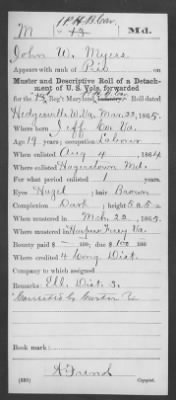 1 P.H.B. Cav.
M | 42 | Md.
John W. Myers
Appears with rank of Priv on
Muster and Descriptive Roll of a Detach-
ment of U. S. Vols. forwarded
for the Reg't Maryland Infantry. Roll dated
Hedgesville W. Va. Mar. 22, 1865.
Where born Jeff. Co. Va.
Age 19 years; occupation Laborer
When enlisted Aug 4, 1864
Where enlisted Hagerstown Md.
For what period enlisted 1 years.
Eyes Hazel; hair Brown
Complexion Dark; height 5 ft. 5 in.
When mustered in Mch. 22, 1865.
Where mustered in Harpers Ferry Va.
Bounty paid $ 100; due $ 100
Where credited 4 Cong Dist.
Company to which assigned
Remarks: Ell. Dist. 3.
Book mark:
A Frend
Copyist.